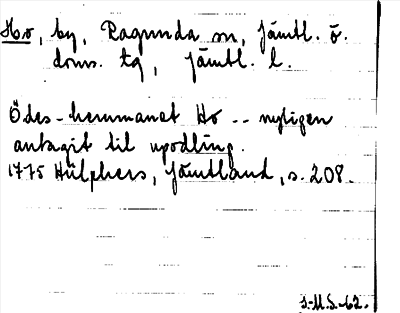 Ho, by, Ragunda sn, Jämtl. ö.
doms. tg, Jämtl. l.
Ödes-hemmanet Ho -- nyligen
antagit til upodling.
1775 Hülphers, Jämtland, s. 208.
S-M.S.-62.